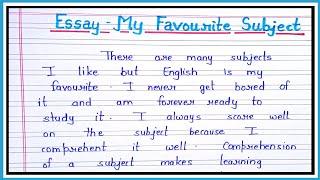 Essay - My Favourite Subject
There are many subjects
I like but English is my
favourite. I never get bored of
it and am forever ready to
study it. I always score well
on the subject because I
comprehent it well. Comprehension
of a subject makes learning